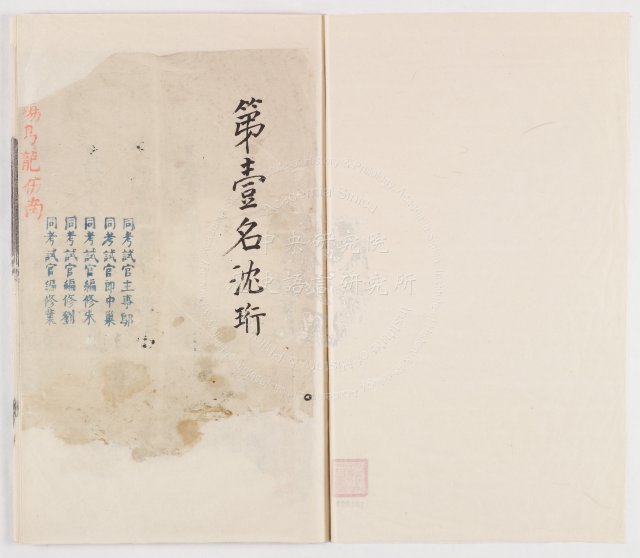 第壹名沈珩
同考試官主事
同考試官郎中巢
同考試官編修朱
同考試官編修劉
同考試官編修葉
中央研究院
史語言研究所
Academia Sinica